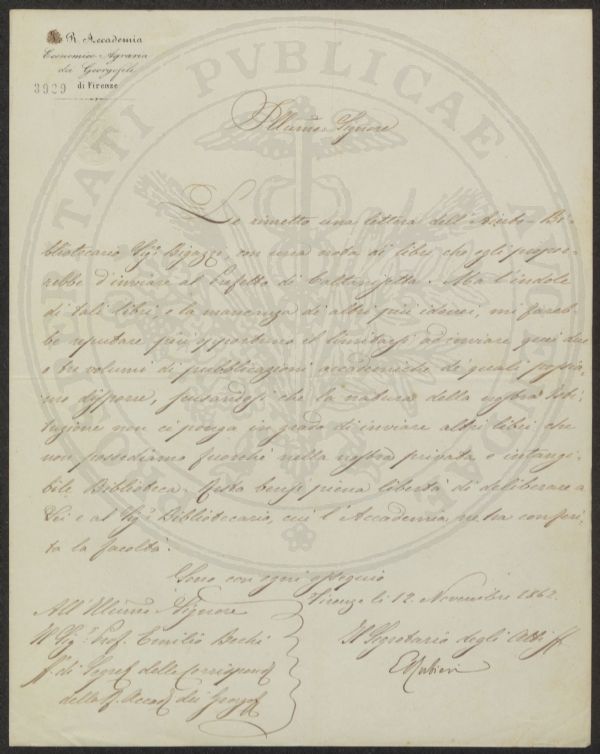 R. Accademia
Economico Agraria
dei Georgofili
di Firenze
3929
PROSPERITATI PUBLICAE AUGENDAE
Illumo Signore
Le rimetto una lettera dell'Aiuto-Bi-
bliotecario Sigr Bigazzi, con una nota di libri che egli propor-
rebbe d'inviare al Prefetto di Caltanissetta. Ma l'indole
di tali libri, e la mancanza di altri più idonei, mi fareb-
be reputare più opportuno il limitarsi ad inviare quei due
o tre volumi di pubblicazioni accademiche di quali possia-
mo disporre, scusandosi che la natura della nostra Isti-
tuzione non ci ponga in grado di inviare altri libri che
non possediamo fuorchè nella nostra privata e intangi-
bile Biblioteca. Resta bensì piena libertà di deliberare a
Lei e al Sigr Bibliotecario, cui l'Accademia ne ha conferi-
ta la facoltà.
Sono con ogni ossequio
Firenze li 12. Novembre 1862.
All'Illumo Signore
Il Sigr Prof. Emilio Bechi
ff. di Segret delle Corrispond
della R. Accad dei Georgof
Il Segretario degli Atti ff
E Rubieri